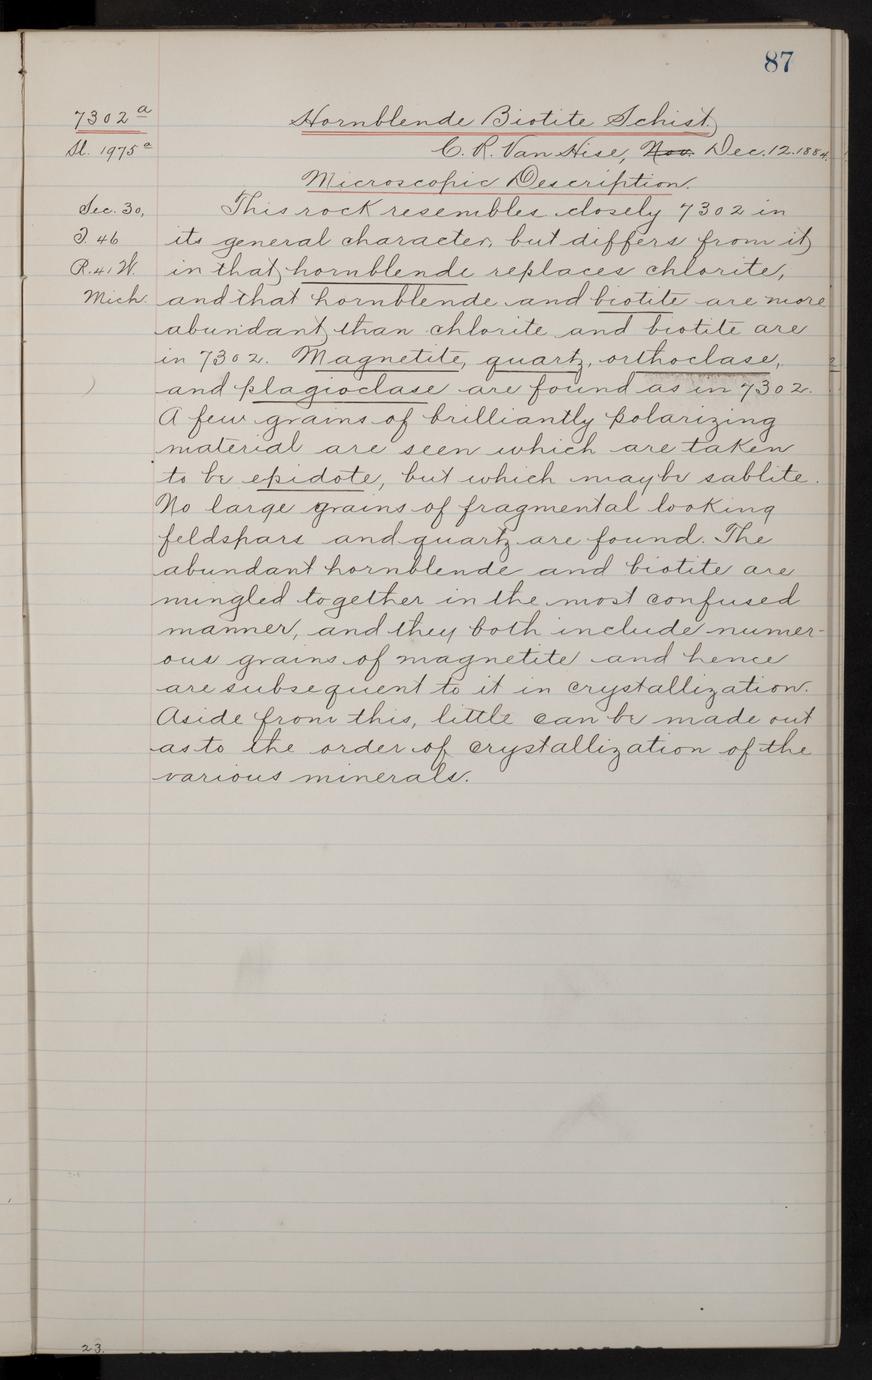 87
7302a
Hornblende Biotite Schist.
Sl. 1975a
C. R. Van Hise, Nov. Dec. 12. 1884.
Microscopic Description.
Sec. 30,
T. 46
R. 41 W.
Mich.
This rock resembles closely 7302 in
its general character, but differs from it
in that hornblende replaces chlorite,
and that hornblende and biotite are more
abundant than chlorite and biotite are
in 7302. Magnetite, quartz, orthoclase,
and plagioclase are found as in 7302.
A few grains of brilliantly polarizing
material are seen which are taken
to be epidote, but which may be sablite.
No large grains of fragmental looking
feldspars and quartz are found. The
abundant hornblende and biotite are
mingled together in the most confused
manner, and they both include numer-
ous grains of magnetite and hence
are subsequent to it in crystallization.
Aside from this, little can be made out
as to the order of crystallization of the
various minerals.
23.